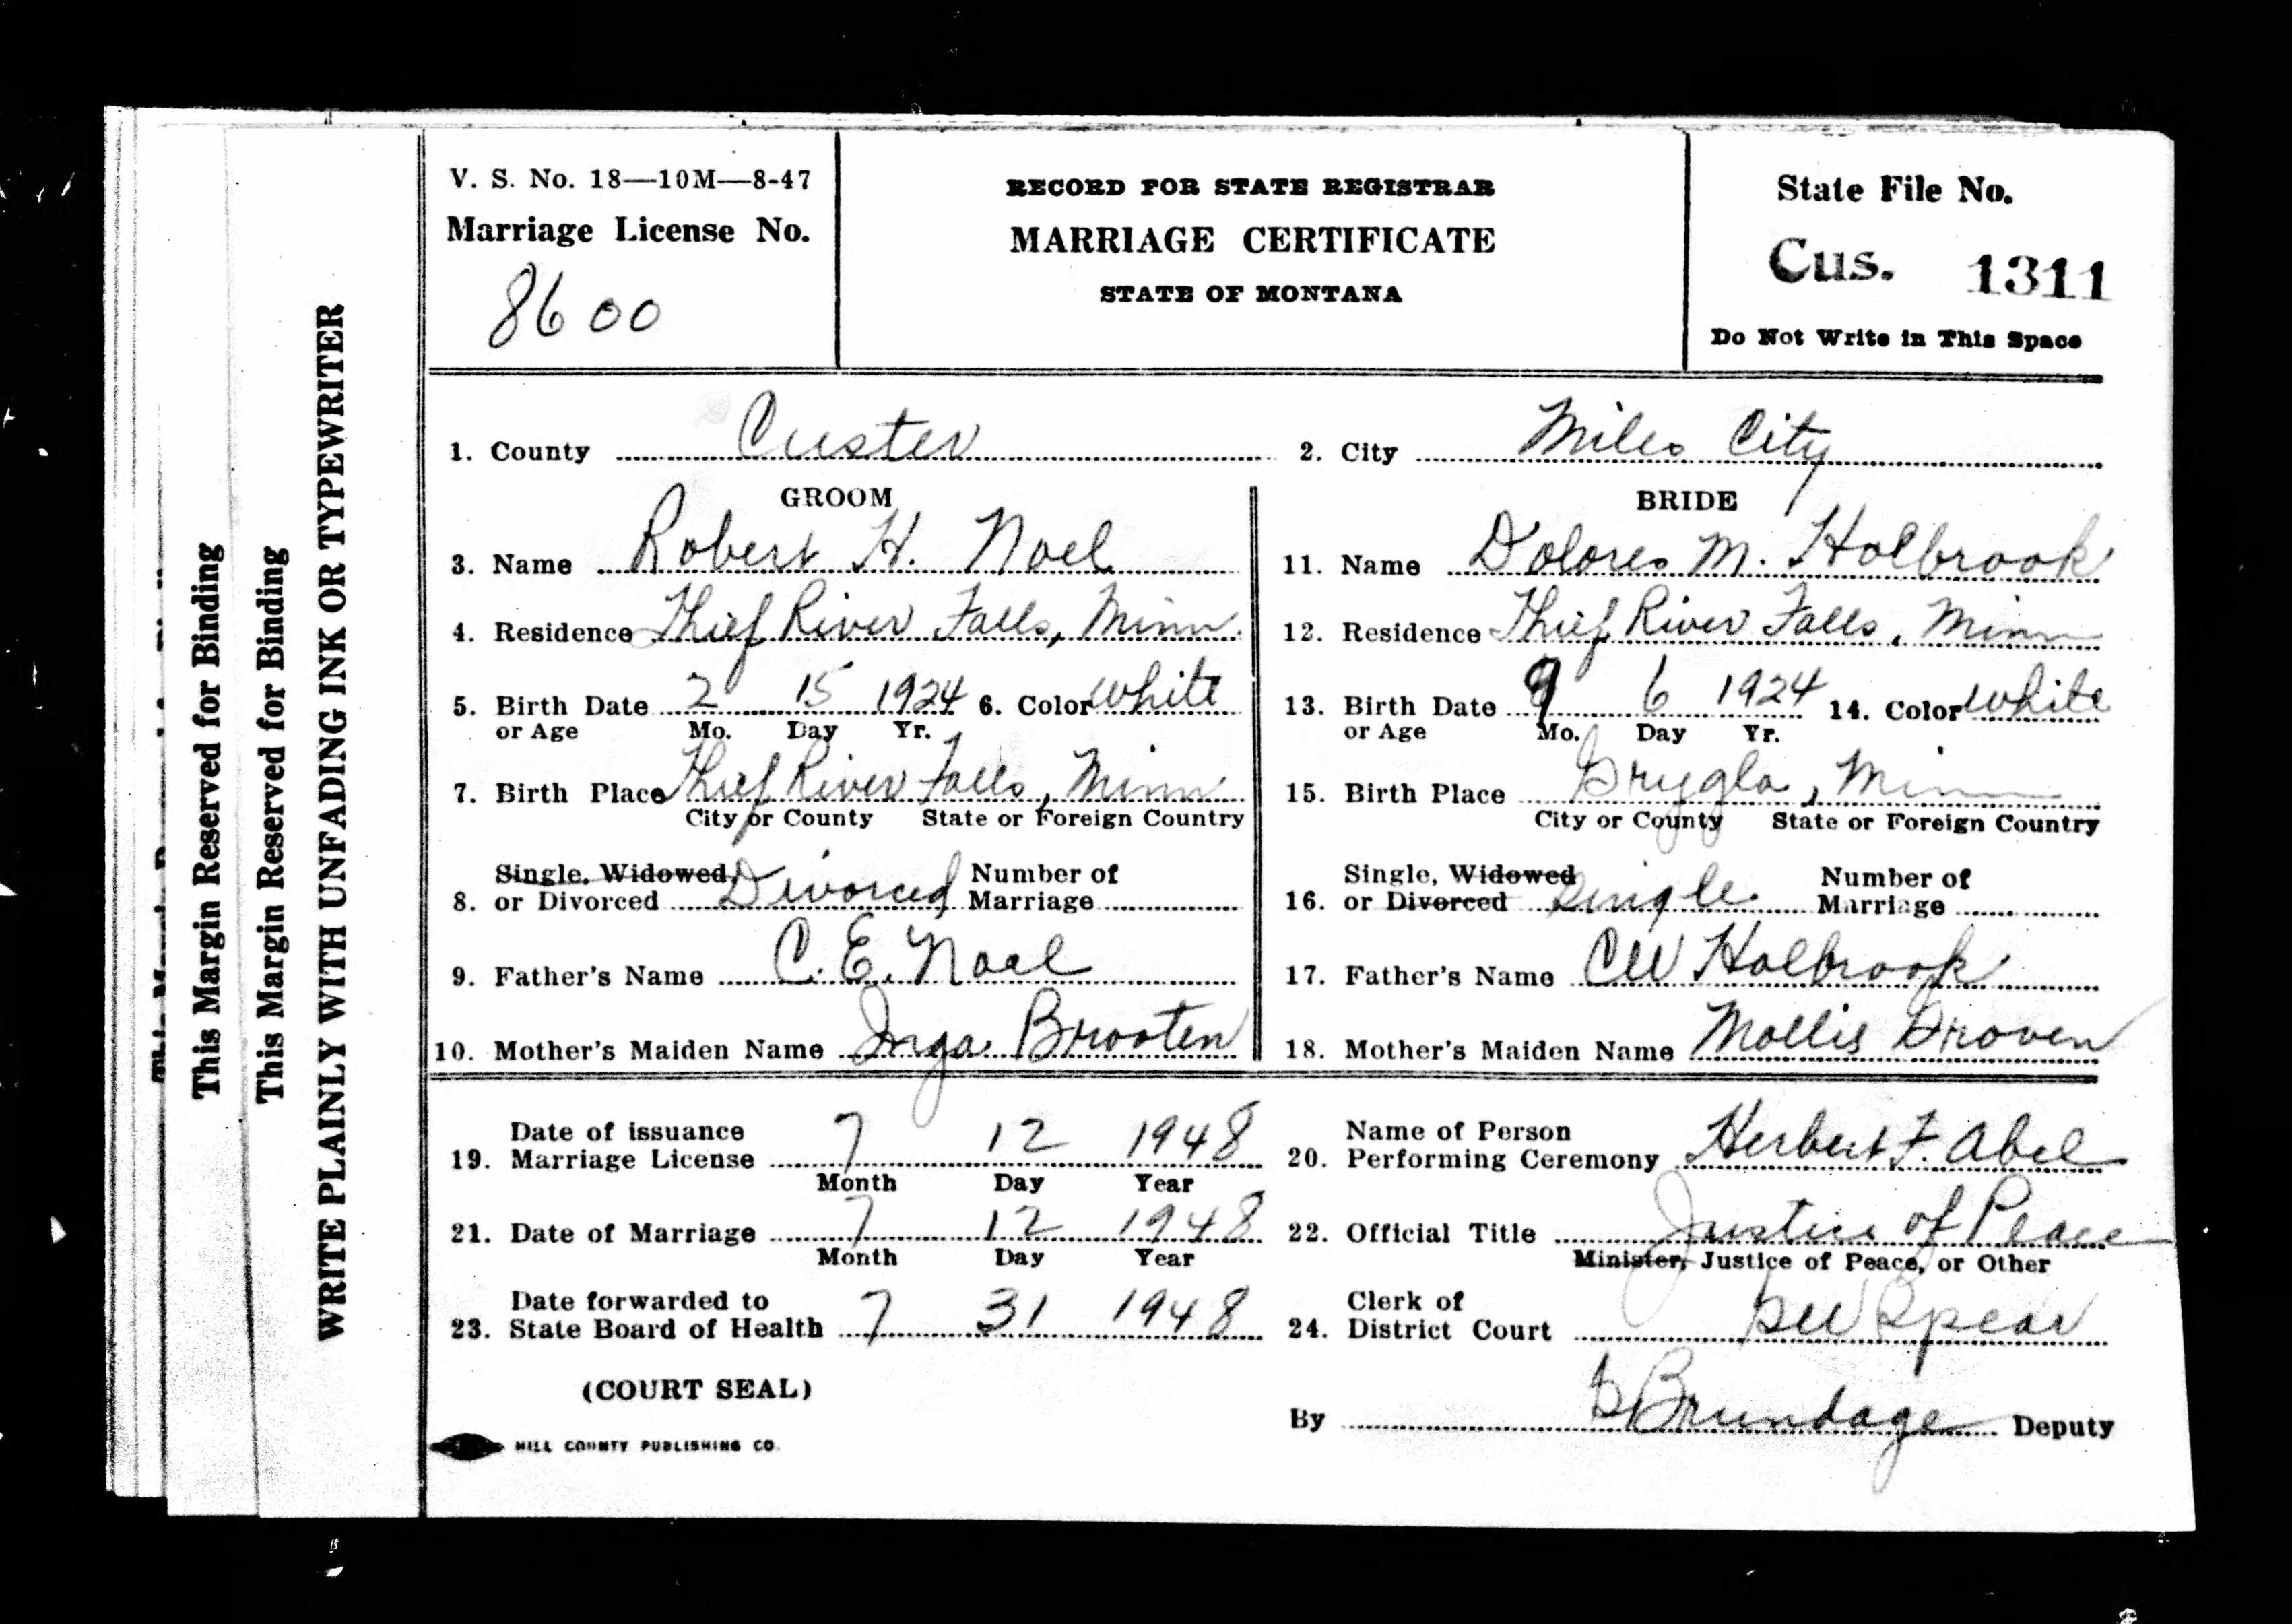 V. S. No. 18—10M—8-47
Marriage License No.
8600
RECORD FOR STATE REGISTRAR
MARRIAGE CERTIFICATE
STATE OF MONTANA
State File No.
Cus. 1311
Do Not Write in This Space
This Margin Reserved for Binding
This Margin Reserved for Binding
WRITE PLAINLY WITH UNFADING INK OR TYPEWRITER
1. County Custer
2. City Miles City
GROOM
3. Name Robert H. Noel
4. Residence Thief River Falls, Minn.
5. Birth Date 2 15 1924 6. Color white
or Age Mo. Day Yr.
7. Birth Place Thief River Falls, Minn
City or County State or Foreign Country
Single, Widowed, Number of
8. or Divorced Divorced Marriage
9. Father's Name C. E. Noel
10. Mother's Maiden Name Inga Brooten
BRIDE
11. Name Dolores M. Holbrook
12. Residence Thief River Falls, Minn
13. Birth Date 9 6 1924 14. Color white
or Age Mo. Day Yr.
15. Birth Place Grygla, Minn
City or County State or Foreign Country
Single, Widowed Number of
16. or Divorced Single Marriage
17. Father's Name CW Holbrook
18. Mother's Maiden Name Mollis Droven
Date of issuance
19. Marriage License 7 12 1948
Month Day Year
Name of Person
20. Performing Ceremony Herbert F. Abel
21. Date of Marriage 7 12 1948
Month Day Year
22. Official Title Justice of Peace
Minister, Justice of Peace, or Other
Date forwarded to
23. State Board of Health 7 31 1948
Clerk of
24. District Court Spear
(COURT SEAL)
By Brundage Deputy
HILL COUNTY PUBLISHING CO.